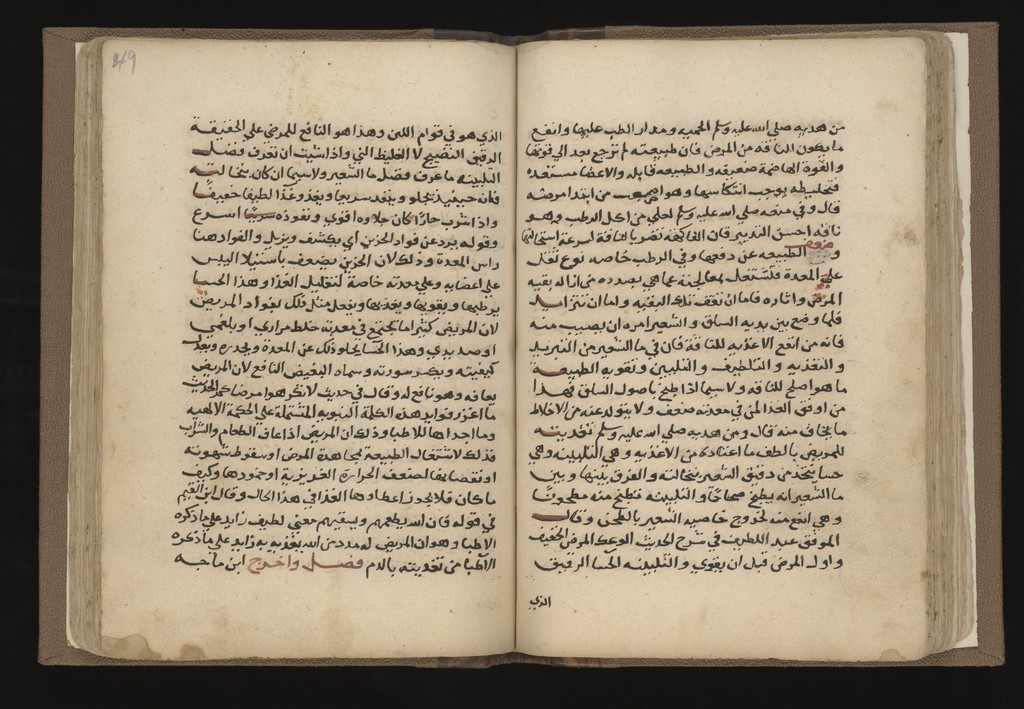 من هديه صلى الله عليه وسلم الحميه ومدار الطب عليها وانفع
ما يكون الناقه من المرض فان طبيعته لم ترجع بعد الي قوتها
والقوة الهاضمة ضعيفه والطبيعه قابله والاعضا مستعده
فتخليطه يوجب انتكاسها وهو اصعب من ابتدا مرضه
قال وفي منعه صلى الله عليه وسلم لعلي من اكل الرطب وهو
ناقه احسن التدبير فان الفاكهة تضر بالناقة لسرعة استحالتها
وضعف الطبيعه عن دفعها وفي الرطب خاصه نوع ثقل
علي المعدة فتشتغل بمعالجته عما هي بصدده من ازاله بقيه
المرض واثاره فاما ان تقف تلك البقيه واما ان تتزايد
فلما وضع بين يديه السلق والشعير امره ان يصيب منه
فانه من انفع الاغذيه للناقة فان في ما الشعير من التبريد
والتغذيه والتلطيف والتليين وتقويه الطبيعة
ما هو اصلح للناقه ولا سيما اذا طبخ باصول السلق فهذا
من اوفق الغذا لمن في معدته ضعف ولا يتولد عنه من الاخلاط
ما يخاف منه قال ومن هديه صلى الله عليه وسلم تغذيته
للمريض بالطف ما اعتاده من الاغذيه وهي التلبينه وهي
حسا يتخذ من دقيق الشعير بنخالته والفرق بينها وبين
ما الشعير انه يطبخ صحاحًا والتلبينه تطبخ منه مطحونًا
وهي انفع منه لخروج خاصيه الشعير بالطحن وقال
الموفق عبد اللطيف في شرح الحديث الوعك المرض الخفيف
واول المرض قبل ان يقوي والتلبينه الحسا الرقيق
الذي
49
الذي هو في قوام اللبن وهذا هو النافع للمرضى علي الحقيقة
الرقيق النضيج لا الغليظ الني واذا شيت ان تعرف فضل
التلبينه فاعرف فضل ما الشعير ولا سيما ان كان بنخالته
فانه حينيذ يجلو وينفذ سريعا ويغذو غذا لطيفا خفيفًا
واذا شرب حارًا كان جلاوه اقوي ونفوذه اسرع
وقوله يرد عن فواد الحزين اي يكشف ويزيل والفواد هنا
راس المعدة وذلك لان الحزين يضعف باستيلا اليبس
علي اعضايه وعلي معدته خاصة لتقليل الغذا وهذا الحسا
يرطبها ويقويها ويغذيها ويفعل مثل ذلك لفواد المريض
لان المريض كثيرا ما يجتمع في معدته خلط مراري او بلغمي
او صديدي وهذا الحسا يجلو ذلك عن المعدة ويحدره ويعدل
كيفيته ويكسر سورته وسماه البغيض النافع لان المريض
يعافه وهو نافع له وقال في حديث لا تكرهوا مرضاكم الحديث
ما اغزر فوايد هذه الكلمة النبويه المشتملة علي الحكمة الالهيه
وما اجداها للاطبا وذلك ان المريض اذا عاف الطعام والشراب
فذلك لاشتغال الطبيعة بمجاهدة المرض او سقوط شهوته
او نقصانها لضعف الحرارة الغريزية او خمودها وكيف
ما كان فلا يجوز اعطاوها الغذا في هذا الحال وقال ابن القيم
في قوله فان الله يطعمهم ويسقيهم معني لطيف زايد علي ما ذكره
الاطبا وهو ان المريض له مدد من الله يغذيه به زايد علي ما ذكره
الاطبا من تغذيته بالدم فصل واخرج ابن ماجه